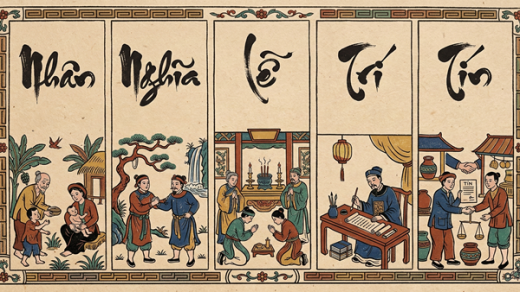 Nhân
Nghĩa
Lễ
Trí
Tín
TÍN